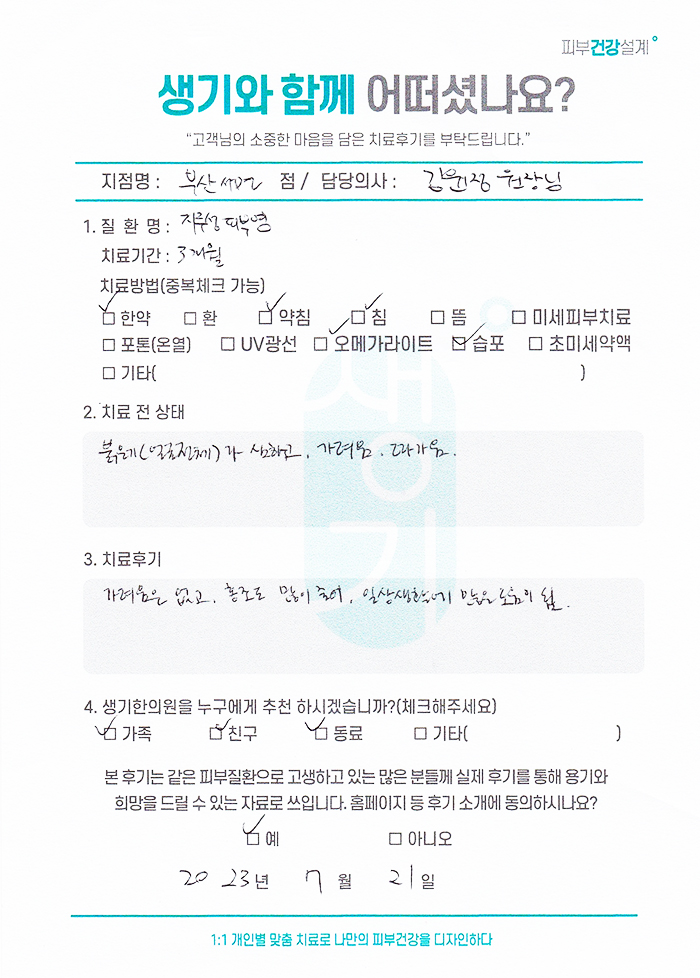 피부건강설계
생기와 함께 어떠셨나요?
“고객님의 소중한 마음을 담은 치료후기를 부탁드립니다.”
지점명 : 부산서면 점 / 담당의사 : 원장님
1. 질 환 명 : 지루성 피부염
치료기간 : 3개월
치료방법(중복체크 가능)
☑ 한약 □ 환 ☑ 약침 ☑ 침 □ 뜸 □ 미세피부치료
□ 포톤(온열) □ UV광선 ☑ 오메가라이트 ☑ 습포 □ 초미세약액
□ 기타( )
2. 치료 전 상태
붉은기(얼굴전체)가 심하고, 가려움, 따가움.
3. 치료후기
가려움은 없고, 홍조도 많이 줄어, 일상생활에 많은 도움이 됨.
4. 생기한의원을 누구에게 추천 하시겠습니까?(체크해주세요)
☑ 가족 ☑ 친구 ☑ 동료 □ 기타( )
본 후기는 같은 피부질환으로 고생하고 있는 많은 분들께 실제 후기를 통해 용기와
희망을 드릴 수 있는 자료로 쓰입니다. 홈페이지 등 후기 소개에 동의하시나요?
☑ 예 □ 아니오
2023년 7월 21일
1:1 개인별 맞춤 치료로 나만의 피부건강을 디자인하다
생기